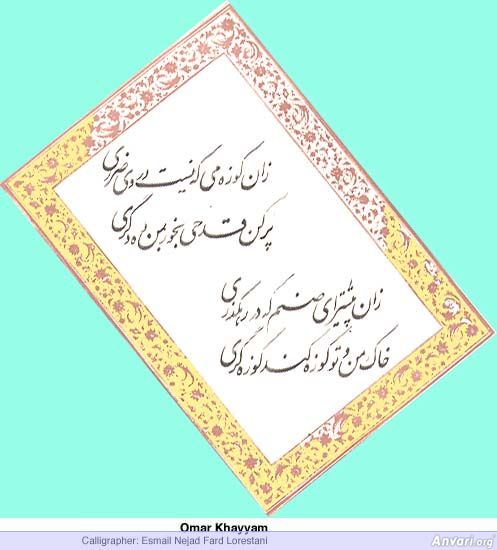 زان کوزه می که نیست در وی ضرری
پر کن قدحی بخور بمن ده دگری
زان پیشتر ای صنم که در رهگذری
خاک من و تو کوزه کند کوزه گری
Omar Khayyam
Calligrapher: Esmail Nejad Fard Lorestani
Anvari.org